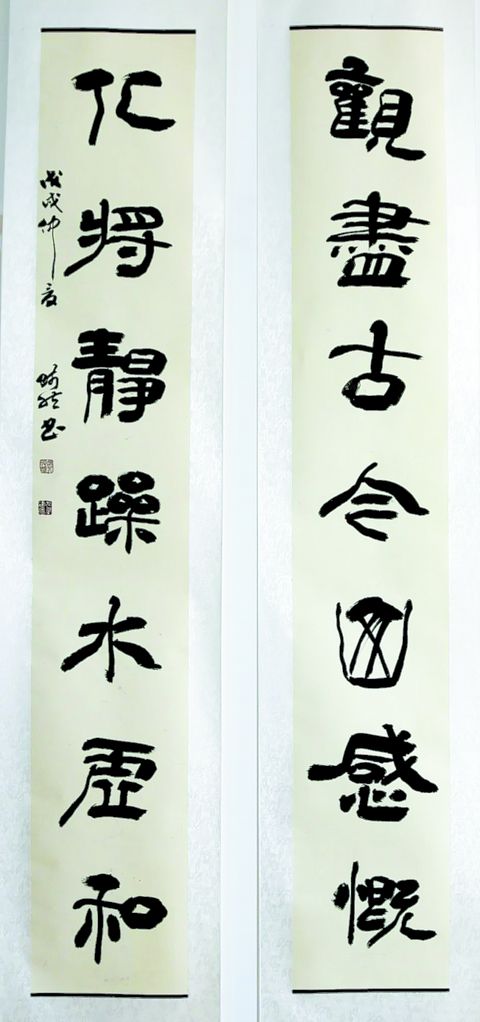 觀盡古今函感慨
化將靜躁水虛和
戊戌仲夏